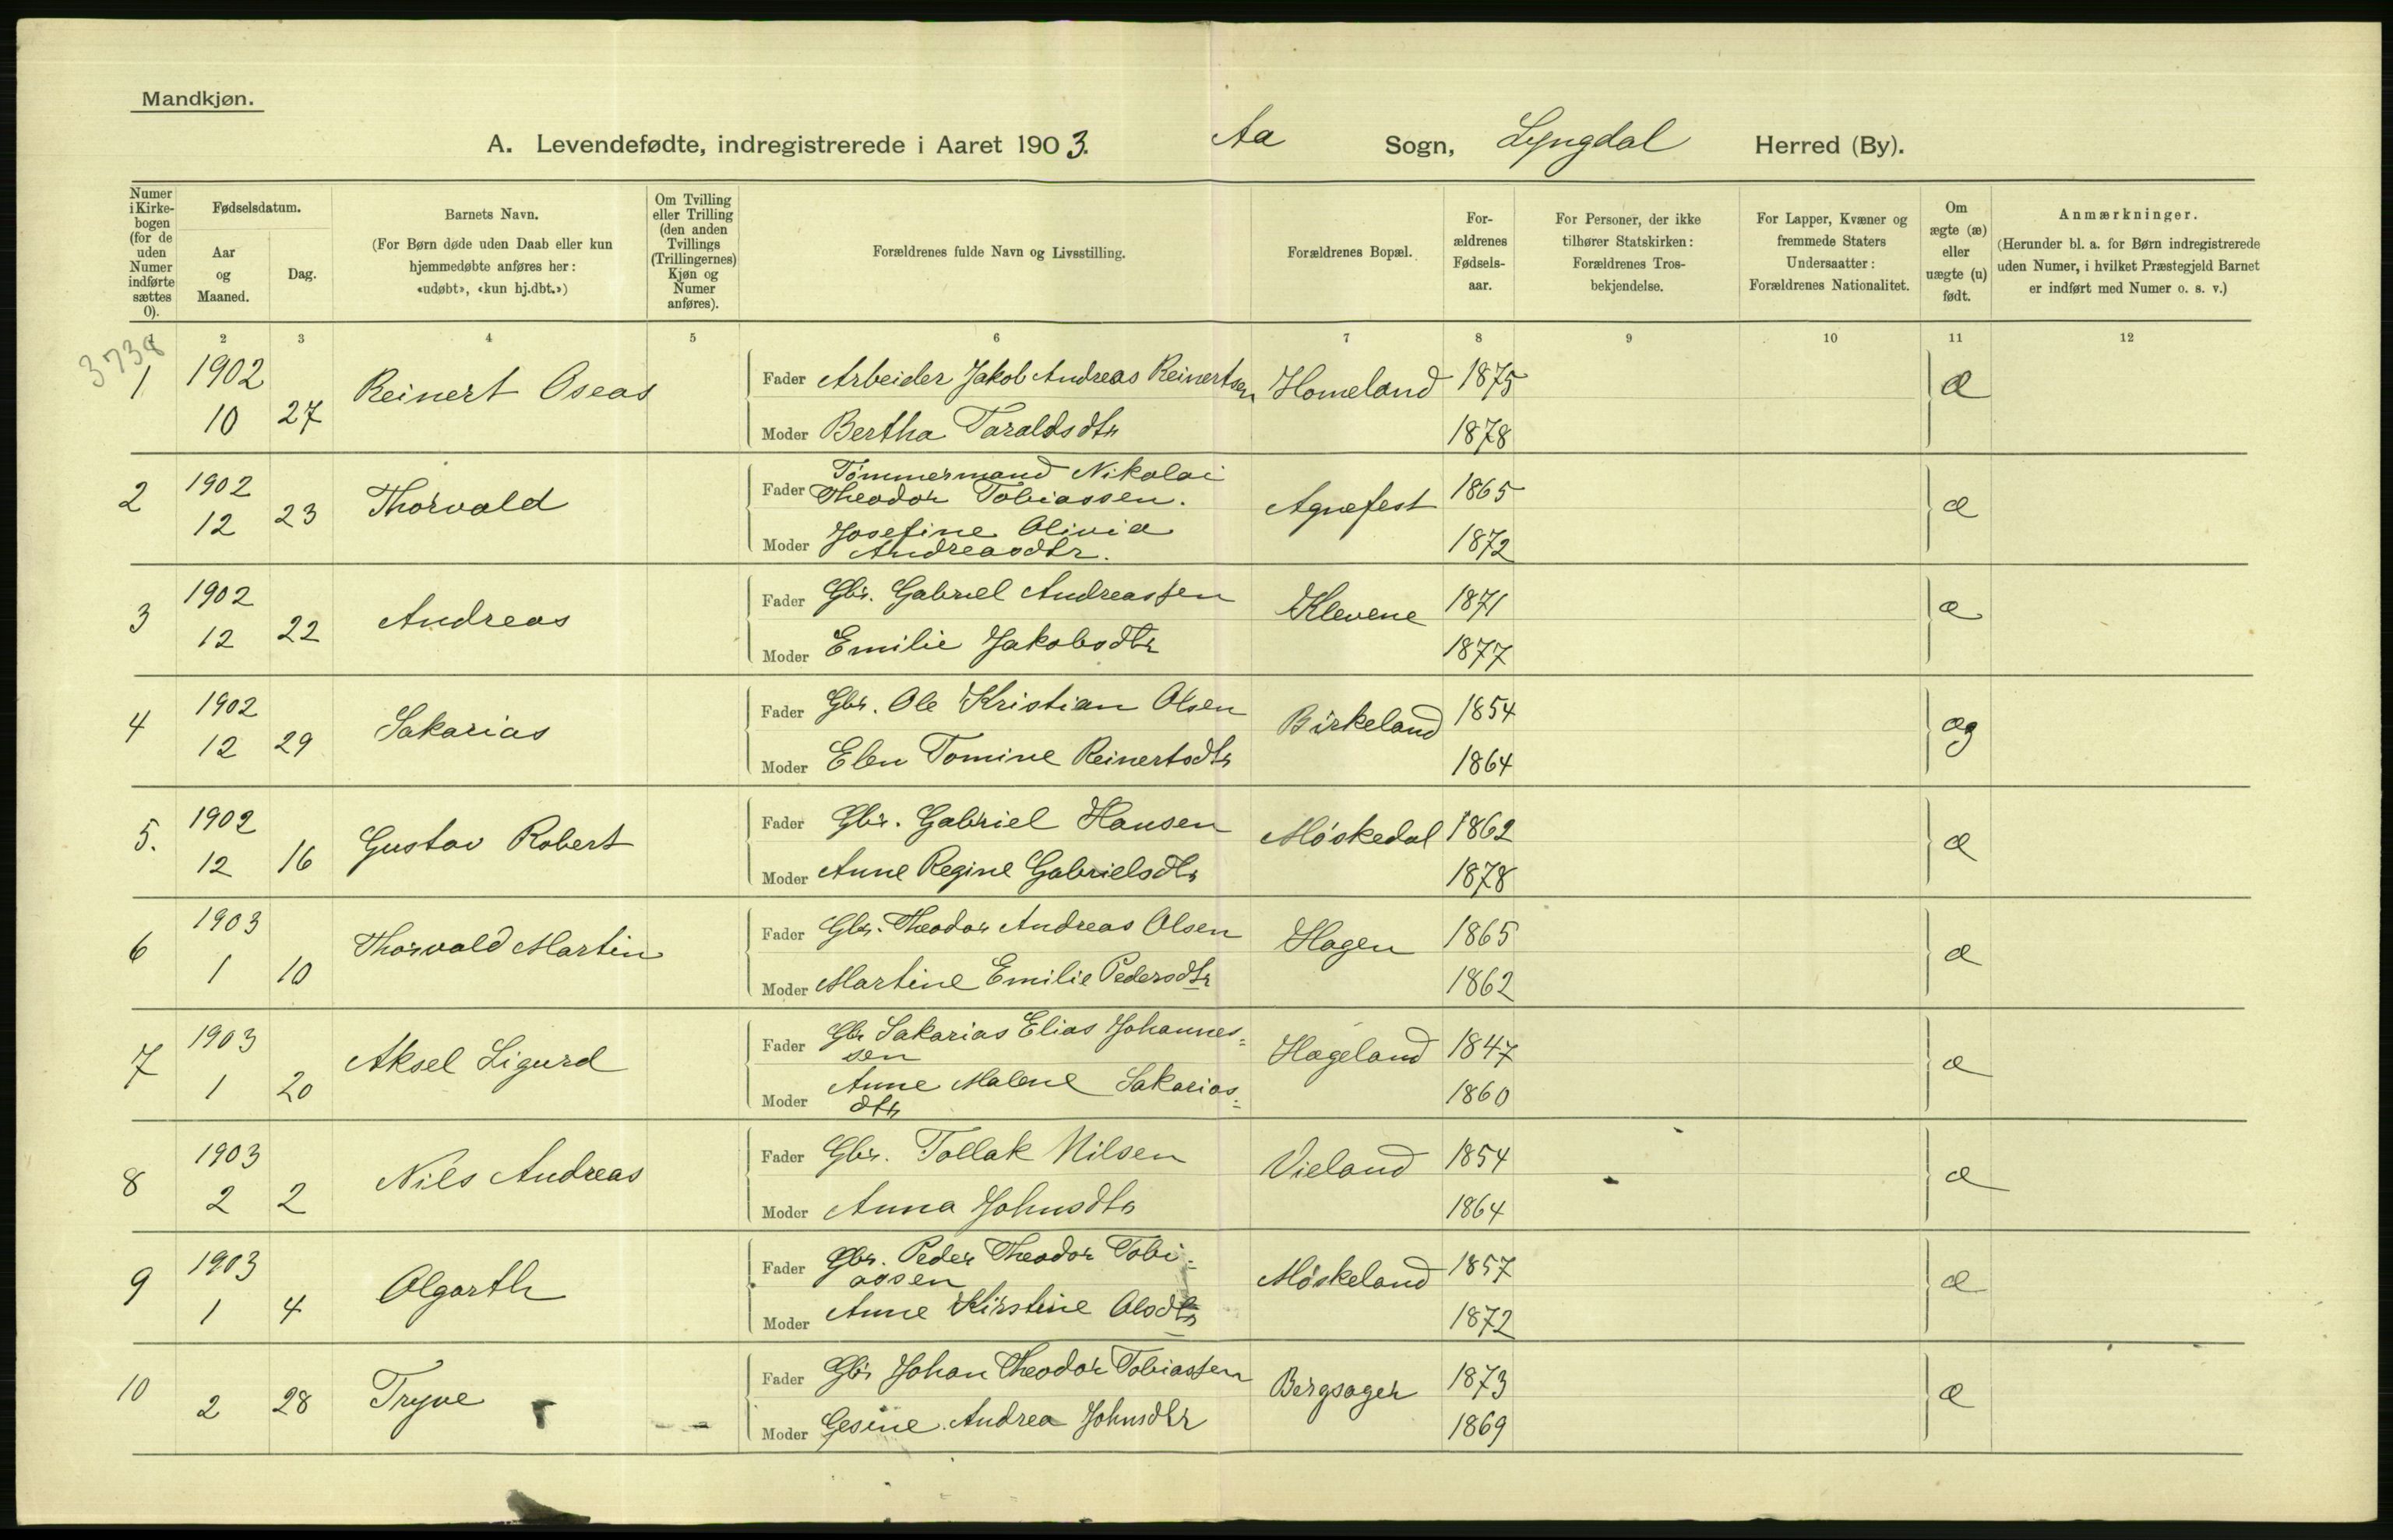 Mandkjøn.
A. Levendefødte, indregistrerede i Aaret 1903. Aa Sogn, Lyngdal Herred (By).
Numer i Kirkebogen (for de uden Numer indførte sættes 0).
Fødselsdatum.
Aar og Maaned.
Dag.
Barnets Navn.
(For Børn døde uden Daab eller kun hjemmedøbte anføres her: «udøbt», «kun hj.dbt.»)
Om Tvilling eller Trilling (den anden Tvillings (Trillingernes) Kjøn og Numer anføres).
Forældrenes fulde Navn og Livsstilling.
Forældrenes Bopæl.
Forældrenes Fødselsaar.
For Personer, der ikke tilhører Statskirken: Forældrenes Trosbekjendelse.
For Lapper, Kvæner og fremmede Staters Undersaatter: Forældrenes Nationalitet.
Om ægte (æ) eller uægte (u) født.
Anmærkninger.
(Herunder bl. a. for Børn indregistrerede uden Numer, i hvilket Præstegjeld Barnet er indført med Numer o. s. v.)
1 2 3 4 5 6 7 8 9 10 11 12
3738
1 1902 10 27 Reinert Oseas Fader Arbeider Jakob Andreas Reinertsen Homeland 1875 æ
Moder Bertha Taraldsdtr 1878
2 1902 12 23 Thorvald Fader Tømmermand Nikolai
Theodor Tobiassen. Agnefest 1865 æ
Moder Josefine Olivia
Andreasdtr. 1872
3 1902 12 22 Andreas Fader Gbr. Gabriel Andreassen Klevene 1871 æ
Moder Emilie Jakobsdtr 1877
4 1902 12 29 Sakarias Fader Gbr. Ole Kristian Olsen Birkeland 1854 æg
Moder Elen Tomine Reinertsdtr 1864
5. 1902 12 16 Gustav Robert Fader Gbr. Gabriel Hansen Møskedal 1862 æ
Moder Anne Regine Gabrielsdtr 1878
6 1903 1 10 Thorvald Martin Fader Gbr. Theodor Andreas Olsen Hagen 1865 æ
Moder Martine Emilie Pedersdtr 1862
7 1903 1 20 Aksel Sigurd Fader Gbr Sakarias Elias Johannes=
sen Hægeland 1847 æ
Moder Anne Malene Sakarias=
dtr 1860
8 1903 2 2 Nils Andreas Fader Gbr. Tollak Nilsen Vieland 1854 æ
Moder Anna Johnsdtr 1864
9 1903 1 4 Olgarth Fader Gbr. Peder Theodor Tobi=
assen Møskeland 1857 æ
Moder Anne Kirstine Olsdtr 1872
10 2 28 Tryve Fader Gbr Johan Theodor Tobiassen Bergsager 1873 æ
Moder Gesine Andrea Johnsdtr 1869